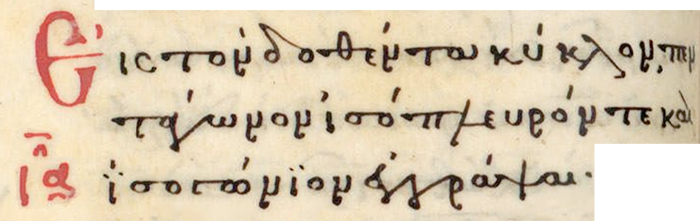 Εἰς τὸν δοθέντα κύκλον, πεν
τάγωνον ἰσόπλευρόν τε καὶ
ια ἰσογώνιον ἐγγράψαι·